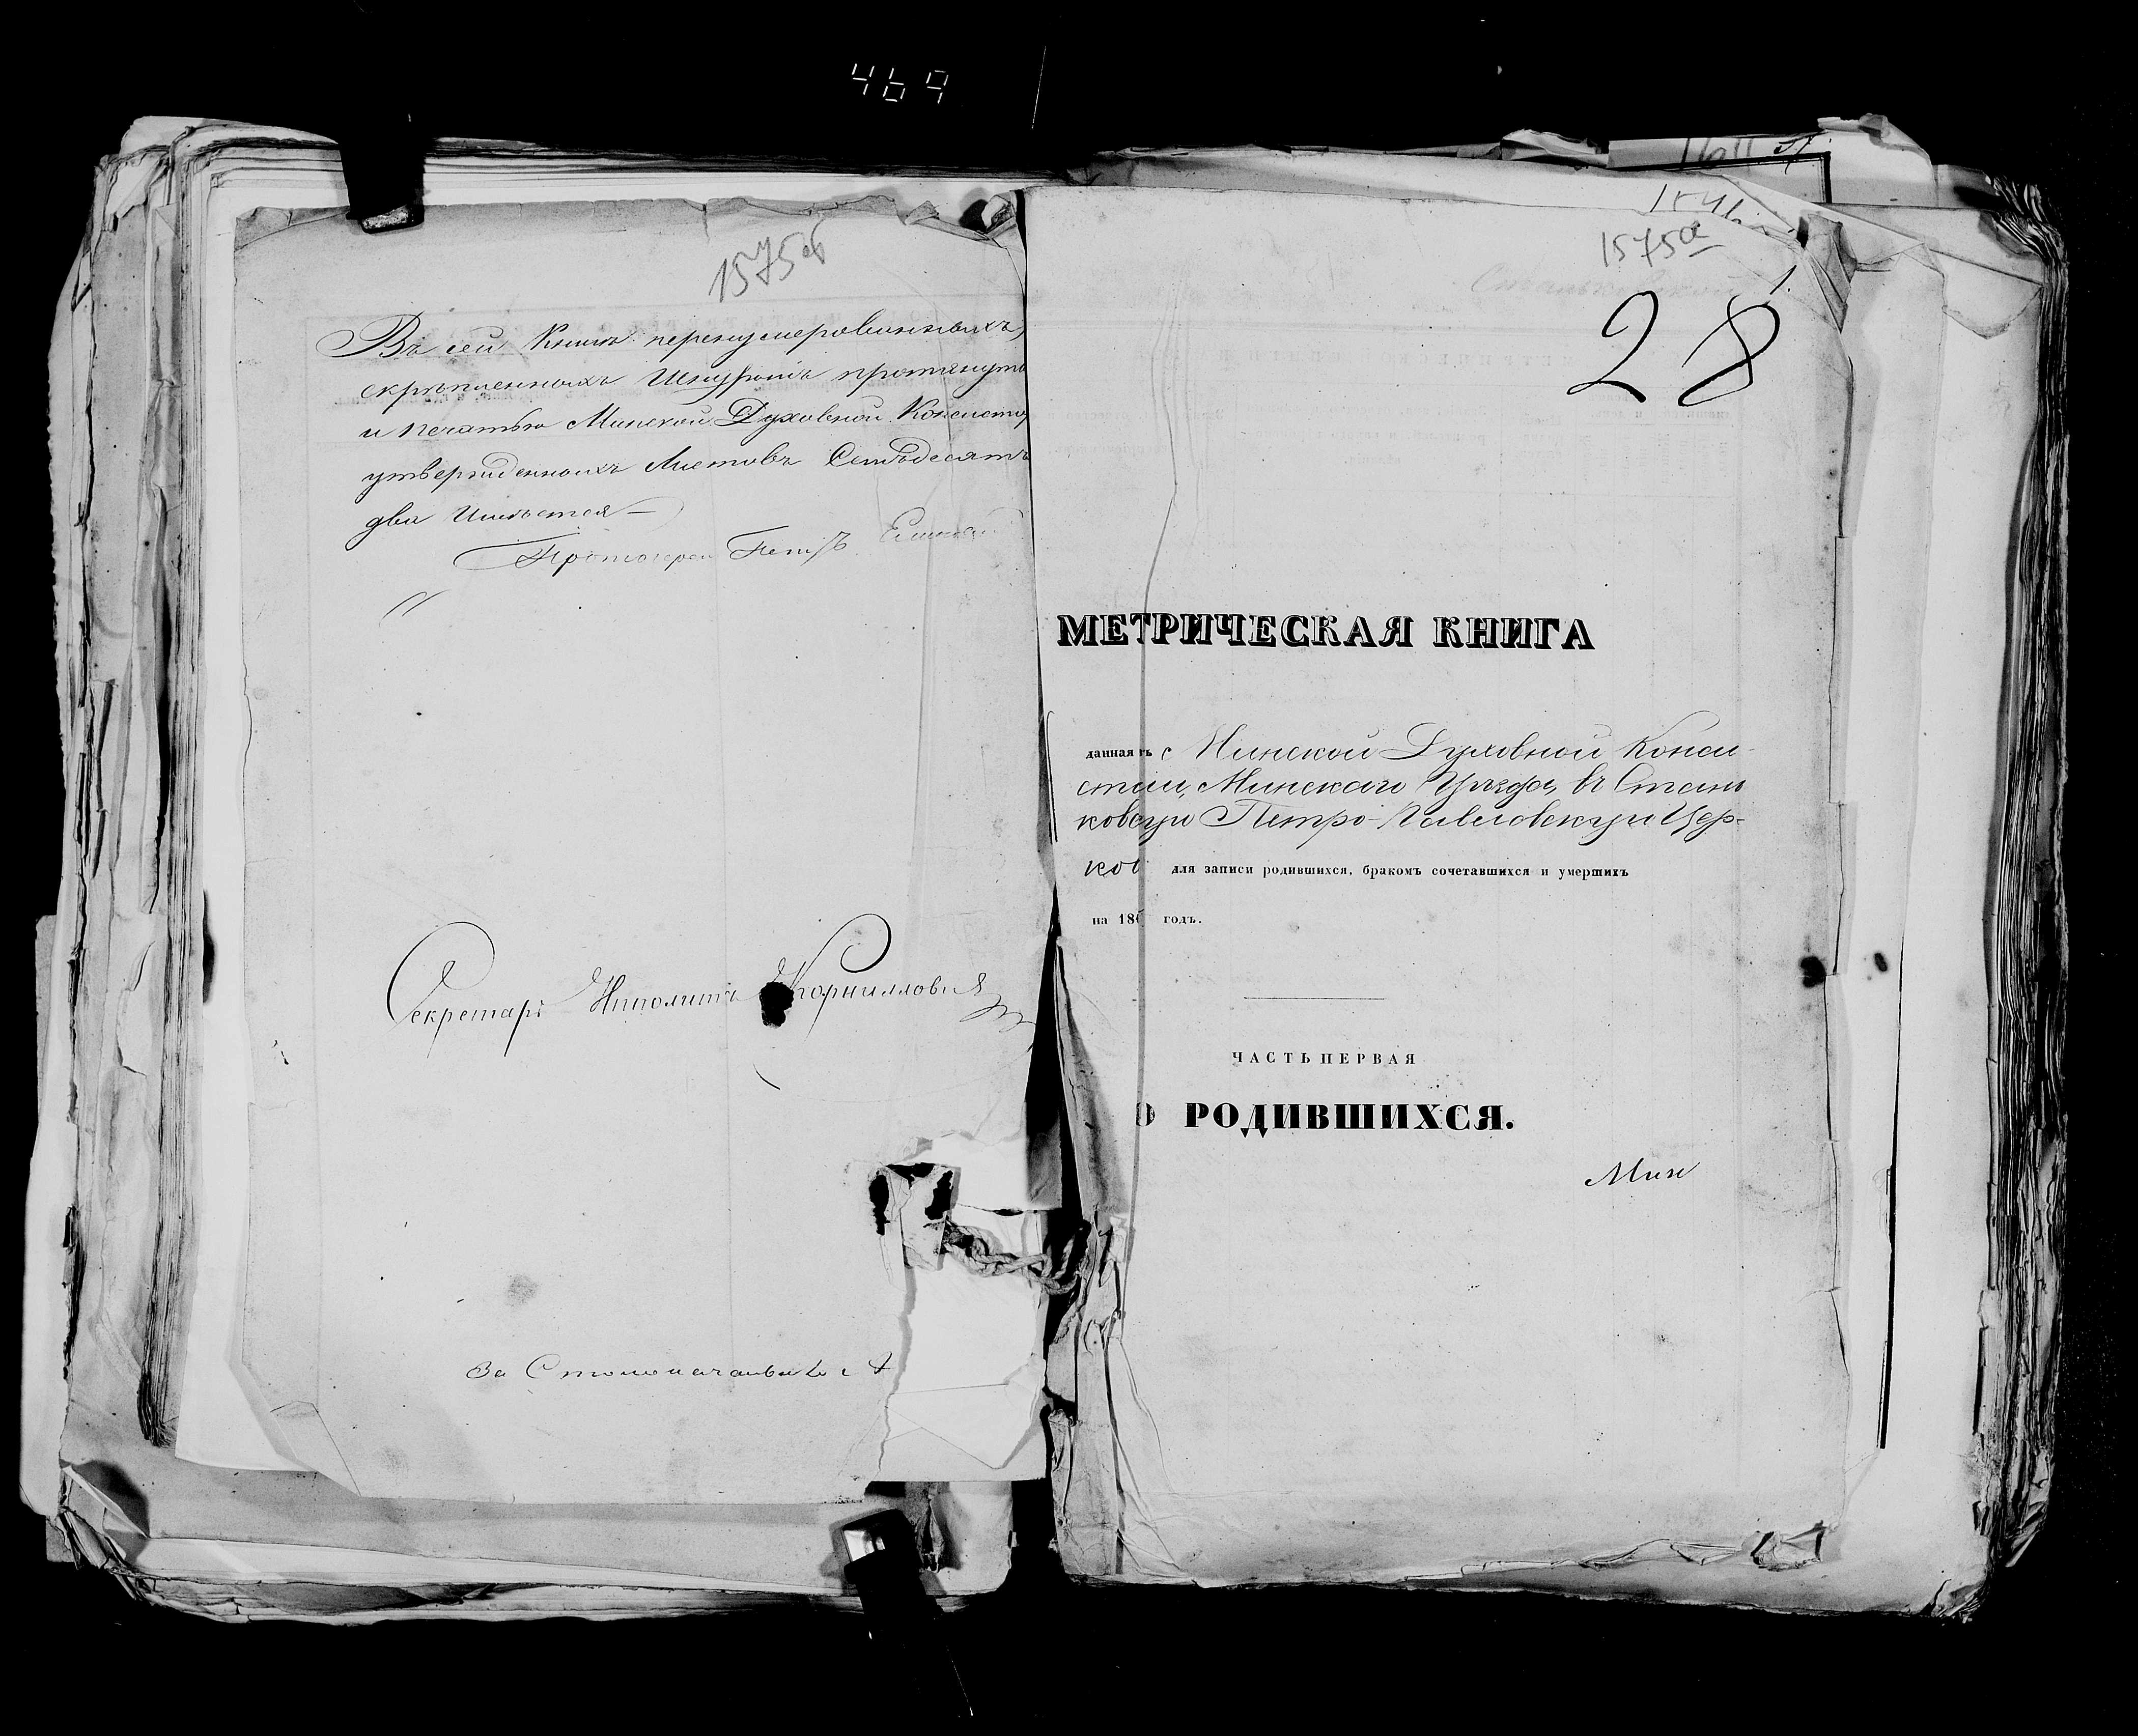 469
1575об
Въ сей Книгѣ перенумерованныхъ,
скрѣпленныхъ Шнуромъ протянуты
и печатью Минской Духовной Консистор
утвержденныхъ Листовъ Семьдесятъ
два Имѣется
Протоіерей Петръ
Секретарь Иполитъ Корниловичь
За Столоначальника
1575а
1.
28
МЕТРИЧЕСКАЯ КНИГА
данная съ Минской Духовной Конси-
сторіи, Минскаго Уѣзда, въ Стань
ковскую Петро-Павловскую Цер-
ков для записи родившихся, бракомъ сочетавшихся и умершихъ
на 186 годъ.
ЧАСТЬ ПЕРВАЯ
О РОДИВШИХСЯ.
Мин